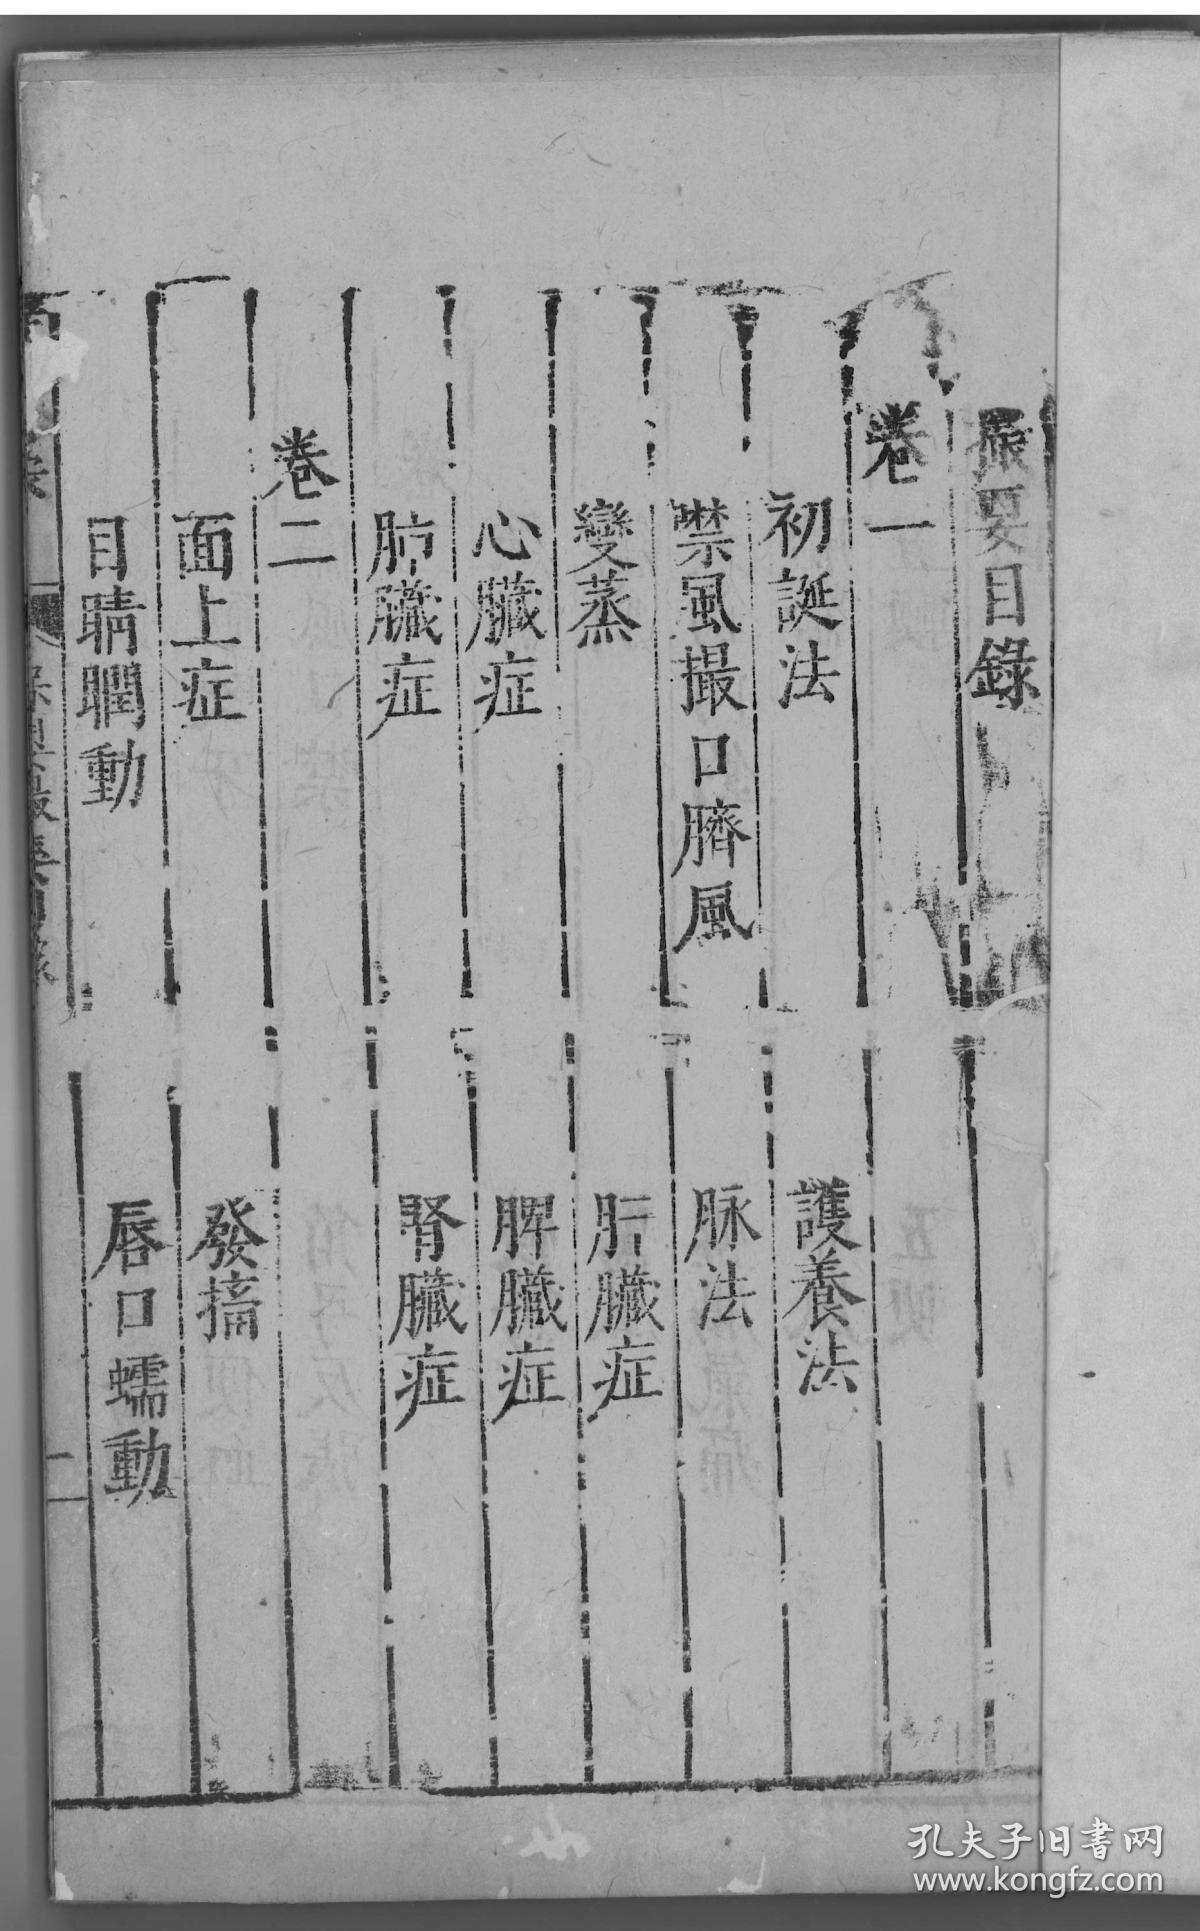 撮要目錄
卷一
初誕法
護養法
噤風撮口臍風
脉法
變蒸
肝臟症
心臟症
脾臟症
肺臟症
腎臟症
卷二
面上症
發搐
目睛瞤動
唇口蠕動
二
孔夫子旧書网
www.kongfz.com